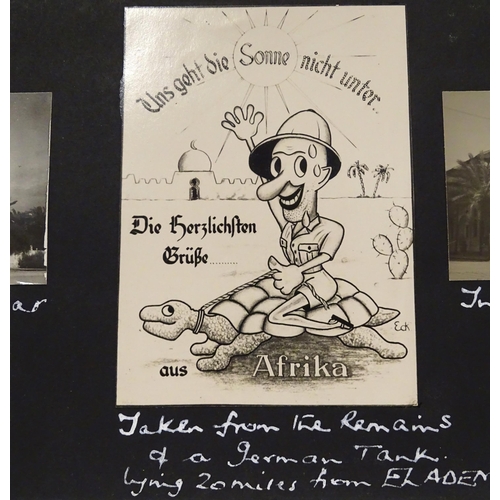 Uns geht die Sonne nicht unter..
Die Herzlichsten
Grüße..........
Eck
aus Afrika
ar
In
Taken from the Remains
of a German Tank.
lying 20 miles from EL ADEM